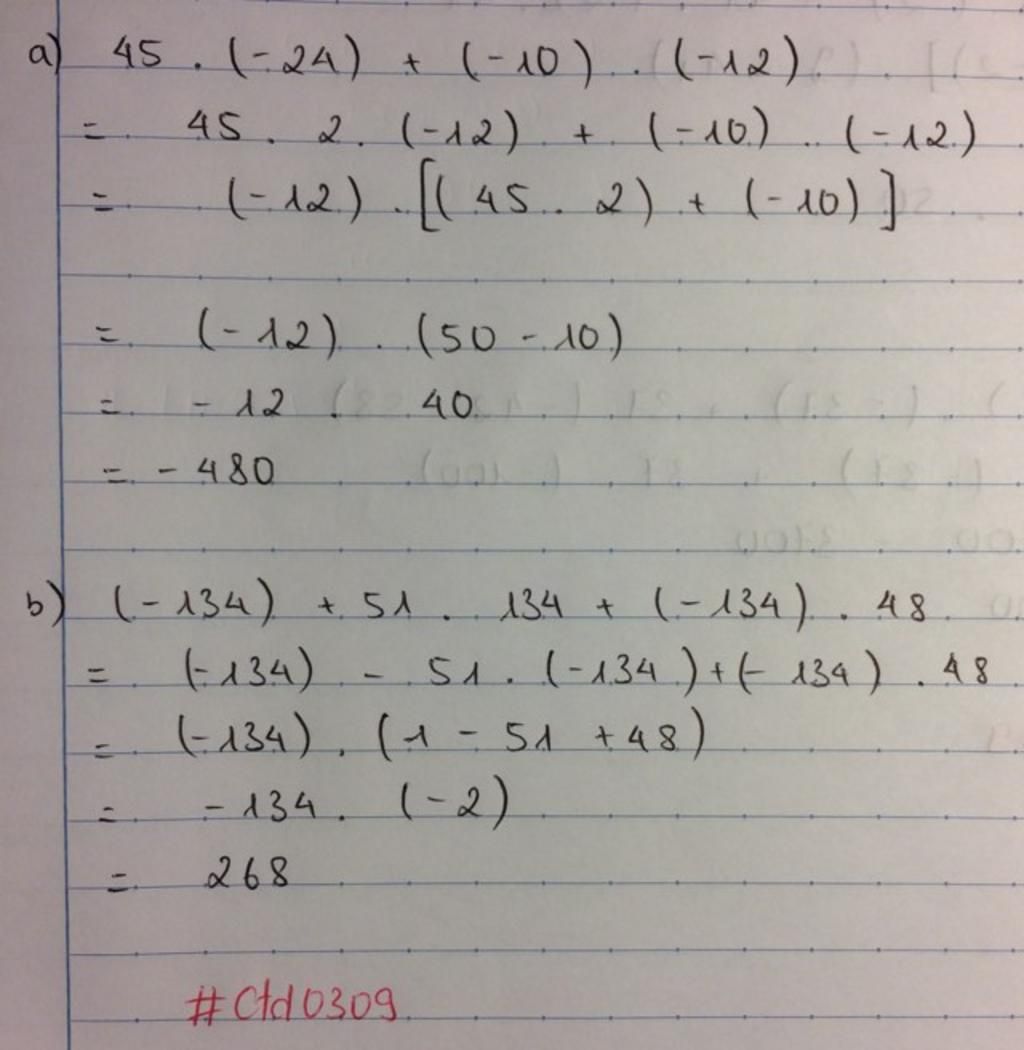 a) 45 . (-24) + (-10) . (-12)
= 45 . 2 . (-12) + (-10) . (-12)
= (-12) . [( 45 . 2) + (-10)]
= (-12) . (50 - 10)
= - 12 . 40
= - 480
b) (-134) + 51 . 134 + (-134) . 48
= (-134) - 51 . (-134) + (- 134) . 48
= (-134) . (1 - 51 + 48)
= -134 . (-2)
= 268
#Ctd0309